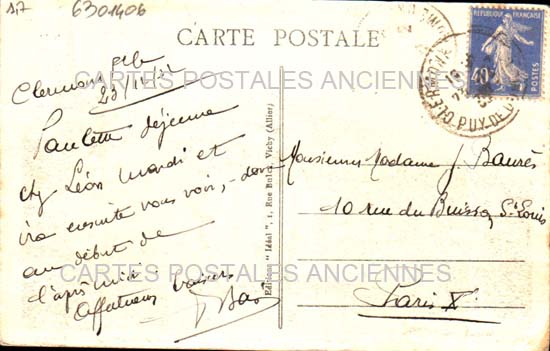 1,7 6301406
CARTE POSTALE
CARTES POSTALES ANCIENNES
REPUBLIQUE FRANÇAISE
40c
POSTES
PUY-DE-D
Clermont
Paulette déjeune
chez Léon mardi et
ira ensuite vous voir, donc
au début de
l'après midi.
Affectueux baisers
Editions "Idéal", 1, Rue Bulot, Vichy (Allier)
Monsieur Madame J. Baurès
10 rue du Buisson St-Louis
Paris X
CARTES POSTALES ANCIENNES